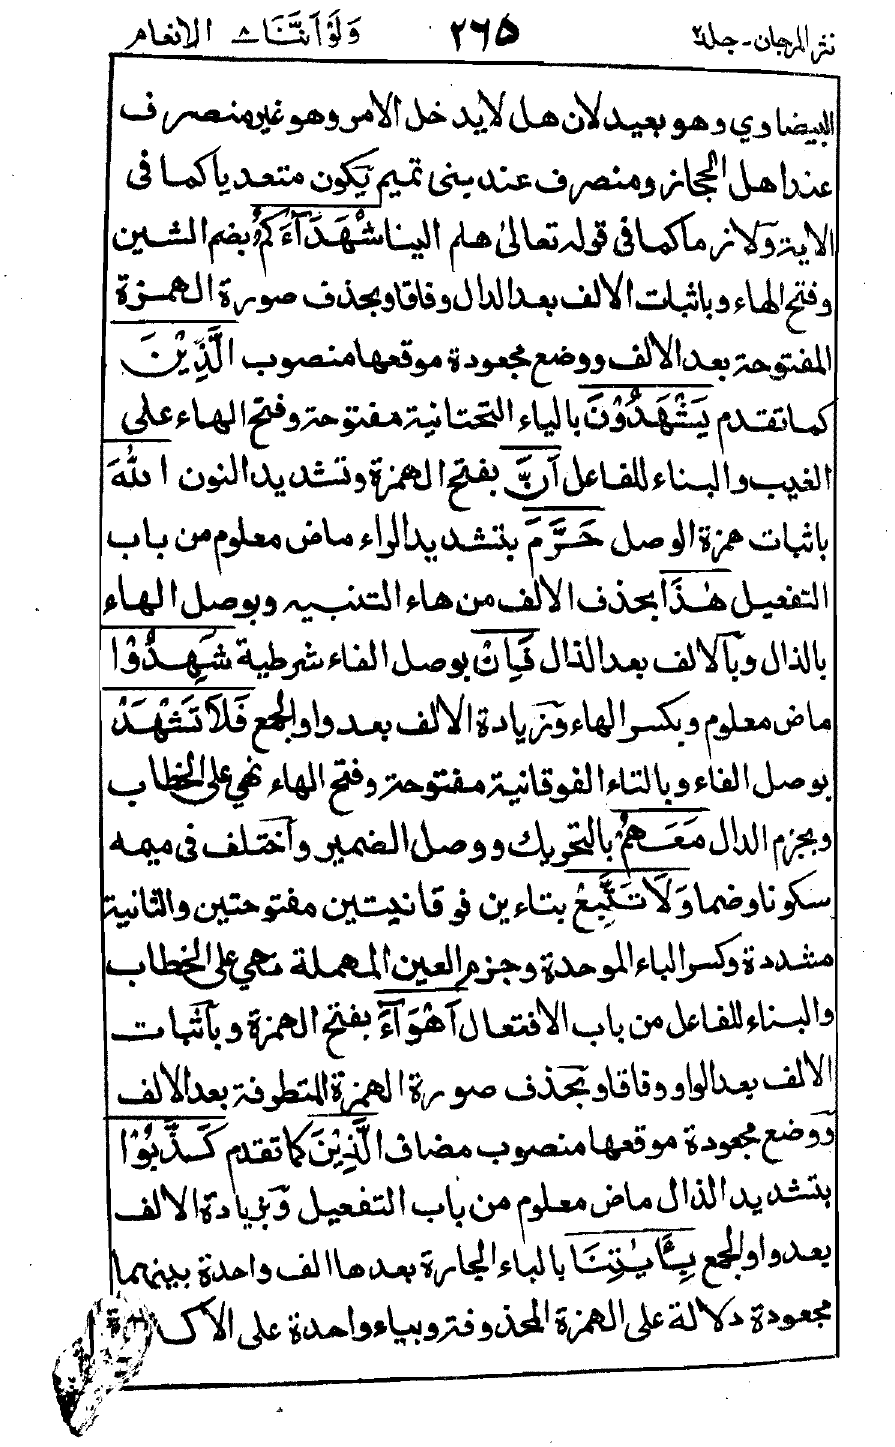 نثر المرجان - جلد ٢ ٢٦٥ وَلَوْ أَنَّنَا ٨ الانعام
البيضاوي وهو بعيد لان هل لا يدخل الامر وهو غير منصرف
عند اهل الحجاز ومنصرف عند بنى تميم يكون متعديا كما فى
الاية ولازما كما فى قوله تعالى هلم الينا شُهَدَآءَكُمُ بضم الشين
وفتح الهاء وباثبات الالف بعد الدال وفاقا وبحذف صورة الهمزة
المفتوحة بعد الالف ووضع مجعودة موقعها منصوب الَّذِيْنَ
كما تقدم يَشْهَدُوْنَ بالياء التحتانية مفتوحة وفتح الهاء على
الغيب والبناء للفاعل اَنَّ بفتح الهمزة وتشديد النون اللّٰهَ
باثبات همزة الوصل حَرَّمَ بتشديد الراء ماض معلوم من باب
التفعيل هٰذَا بحذف الالف من هاء التنبيه وبوصل الهاء
بالذال وبالالف بعد الذال فَاِنْ بوصل الفاء شرطية شَهِدُوْا
ماض معلوم وبكسر الهاء وزيادة الالف بعد واو الجمع فَلَا تَشْهَدْ
بوصل الفاء وبالتاء الفوقانية مفتوحة وفتح الهاء نهي على الخطاب
وبجزم الدال مَعَهُمْ بالتحريك ووصل الضمير واختلف فى ميمه
سكونا وضما وَلَا تَتَّبِعْ بتاءين فوقانيتين مفتوحتين والثانية
مشددة وكسر الباء الموحدة وجزم العين المهملة نهي على الخطاب
والبناء للفاعل من باب الافتعال اَهْوَآءَ بفتح الهمزة وباثبات
الالف بعد الواو وفاقا وبحذف صورة الهمزة المتطرفة بعد الالف
ووضع مجعودة موقعها منصوب مضاف الَّذِيْنَ كما تقدم كَذَّبُوْا
بتشديد الذال ماض معلوم من باب التفعيل وبزيادة الالف
بعد واو الجمع بِـَٔايٰتِنَا بالباء الجارة بعدها الف واحدة بينهما
مجعودة دلالة على الهمزة المحذوفة وبياء واحدة على